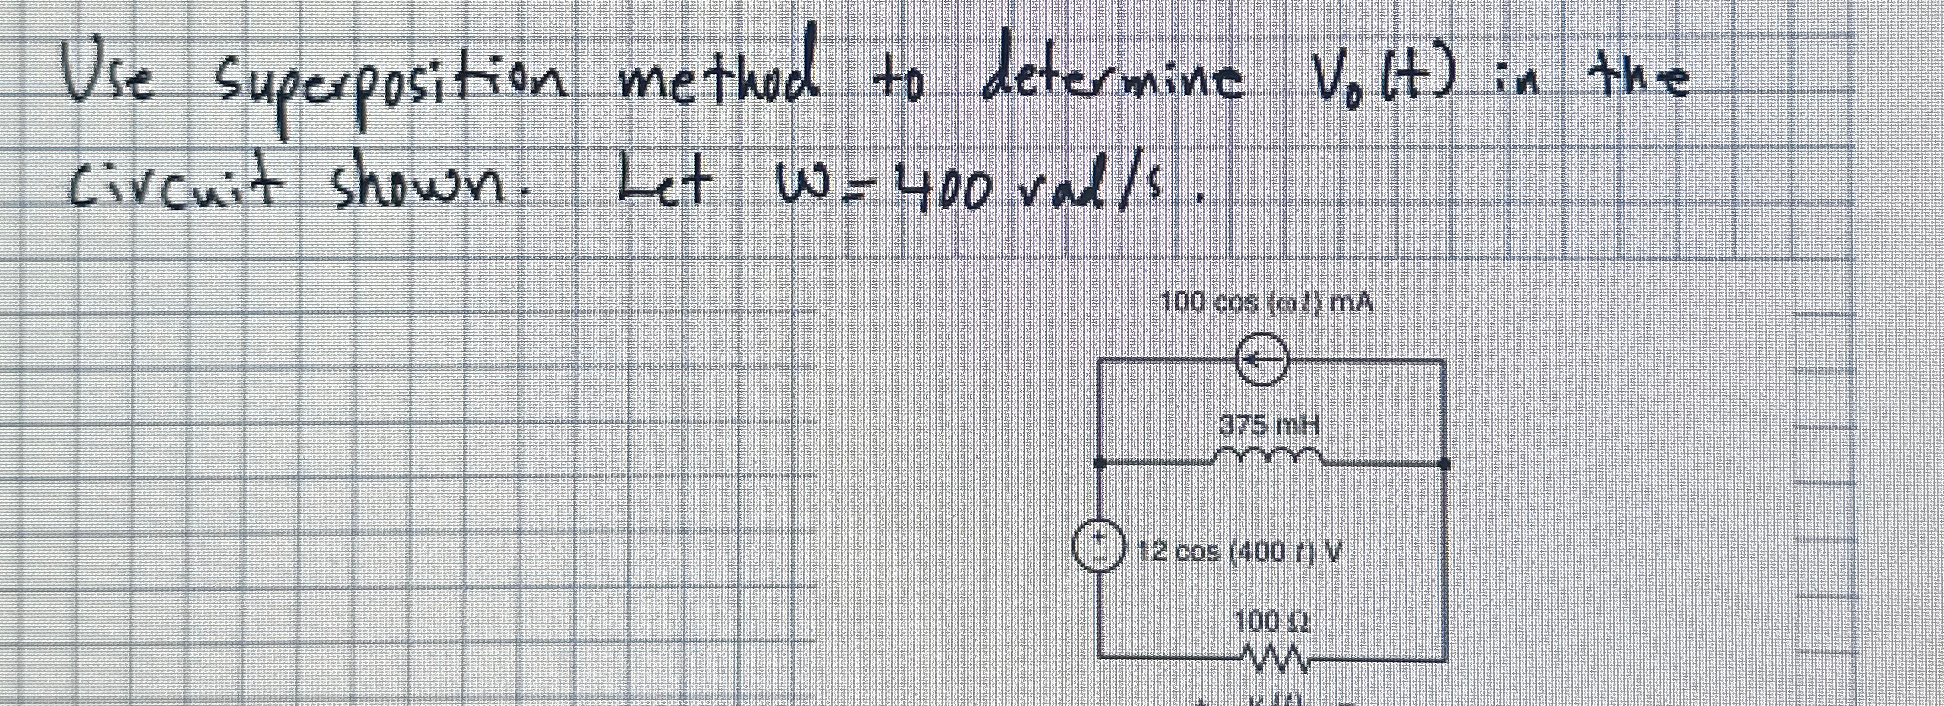 Use superposition method to determine V₀(t) in the
circuit shown. Let ω = 400 rad/s.
100 cos (ω t) mA
375 mH
+
−
12 cos (400 t) V
100 Ω